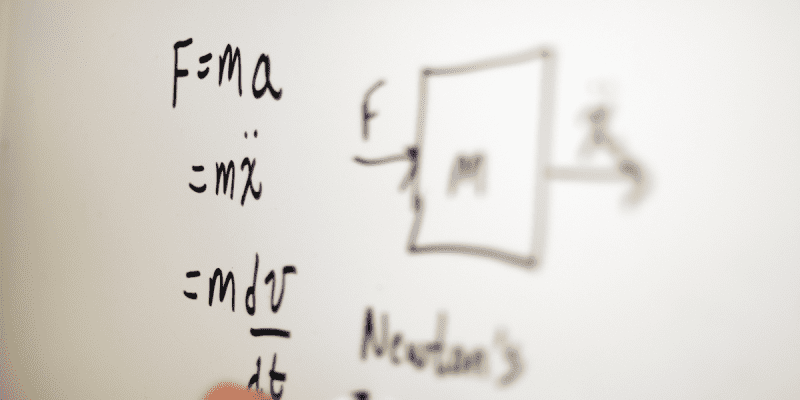 F=ma
=mẍ
=m dv/dt
F
M
ẍ
Newton's